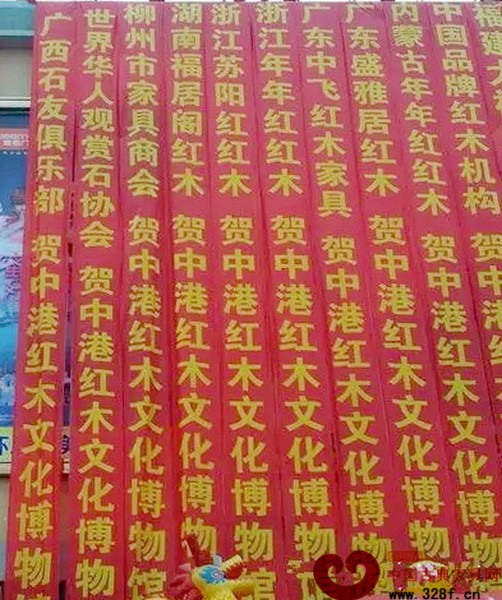 中国品牌红木机构 贺中港红木文化博物
内蒙古年年红红木 贺中港红木文化博物
广东盛雅居红木 贺中港红木文化博物
广东中飞红木家具 贺中港红木文化博物
浙江年年红红木 贺中港红木文化博物
浙江苏阳红红木 贺中港红木文化博物馆
湖南福居阁红木 贺中港红木文化博物
柳州市家具商会 贺中港红木文化博物馆
世界华人观赏石协会 贺中港红木文化博物
广西石友俱乐部 贺中港红木文化博物馆
中国古典家具网
www.328f.cn